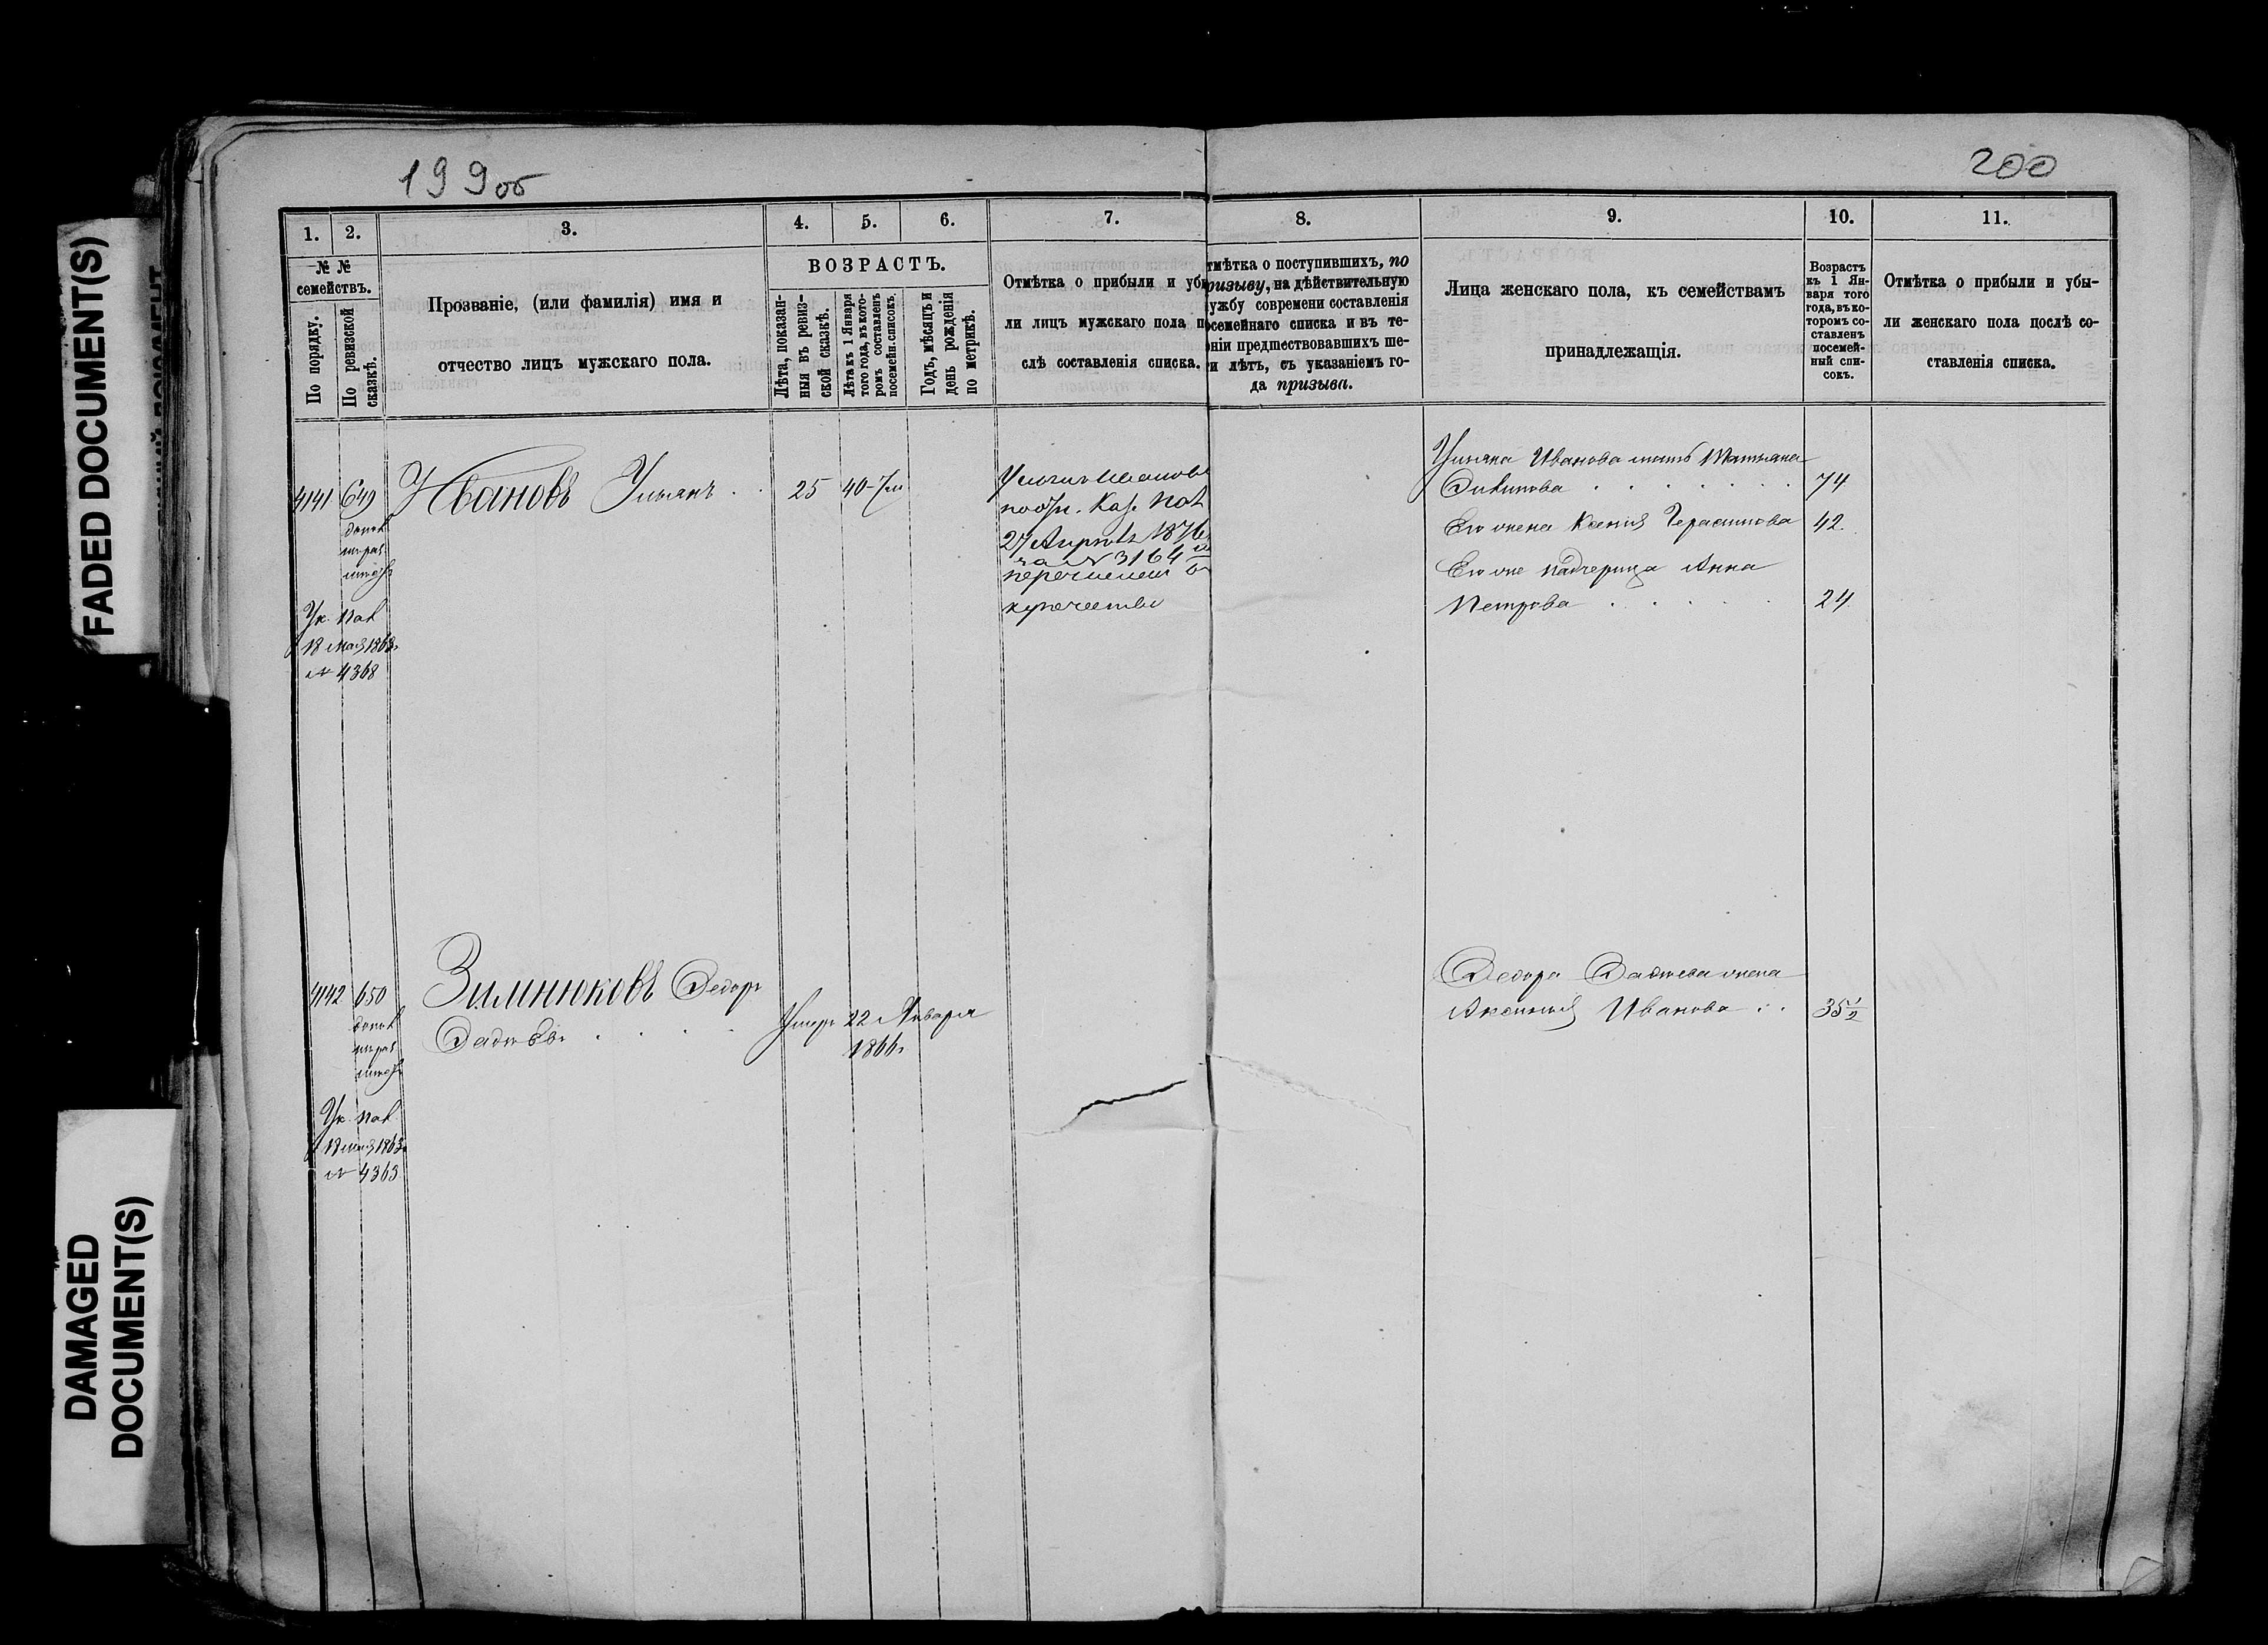 FADED DOCUMENT(S)
DAMAGED
DOCUMENT(S)
199об
200
1.
2.
3.
4.
5.
6.
7.
8.
9.
10.
11.
№ №
семействъ.
По порядку.
По ревизской
сказкѣ.
Прозваніе, (или фамилія) имя и
отчество лицъ мужскаго пола.
ВОЗРАСТЪ.
Лѣта, показан-
ныя въ ревиз-
ской сказкѣ.
Лѣта къ 1 Января
того года, въ кото-
ромъ составленъ
посемейн. списокъ.
Годъ, мѣсяцъ и
день рожденія
по метрикѣ.
Отмѣтка о прибыли и убы
ли лицъ мужскаго пола п
слѣ составленія списка.
тмѣтка о поступившихъ, по
ризыву, на дѣйствительную
ужбу современи составленія
осемейнаго списка и въ те-
ніи предшествовавшихъ ше-
и лѣтъ, съ указаніемъ го-
да призыва.
Лица женскаго пола, къ семействамъ
принадлежащія.
Возрастъ
къ 1 Ян-
варя того
года, въ ко-
торомъ со-
ставленъ
посемей-
ный спи-
сокъ.
Отмѣтка о прибыли и убы-
ли женскаго пола послѣ со-
ставленія списка.
4141 649 Ивановъ Ульянъ . . 25 40
допол
Ук. Пал
18 мая 1863г
№ 4368
Ульянъ Ивановъ
по опр. Каз. Пал
27 Апрѣля 1876г
за № 3164
перечислен въ
купечество
Ульяна Иванова мать Татьяна
74
Его жена Ксенія Герасимова 42.
Его же падчерица Анна
Петрова . . . . . 24.
4142 650 Зимнюковъ Ѳедоръ
допол
Ук. Пал
18 мая 1863г
№ 4363
Умеръ 22 Января
1866г
Ѳедора жена
Аксинья Иванова . . 35 1/2